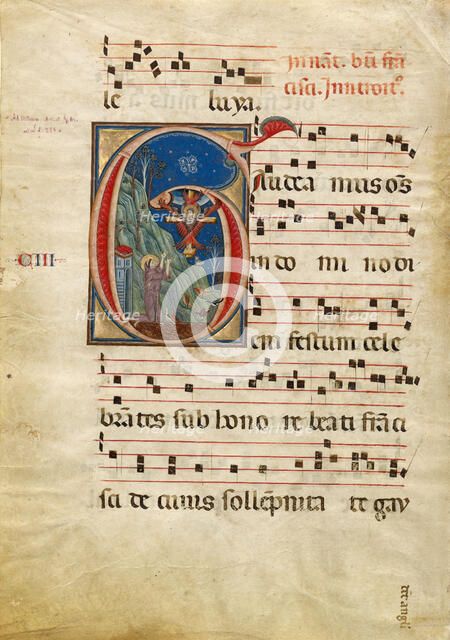 le luya.
In nat. bti fra
cisci. Introit.
CIII
Gaudea mus os
in do mi no di
em festum cele
brates sub hono re bea ti fraci
sci de cuius sollepnita te gau
tet angli
Heritage
Heritage
Heritage
Heritage
Heritage
Heritage